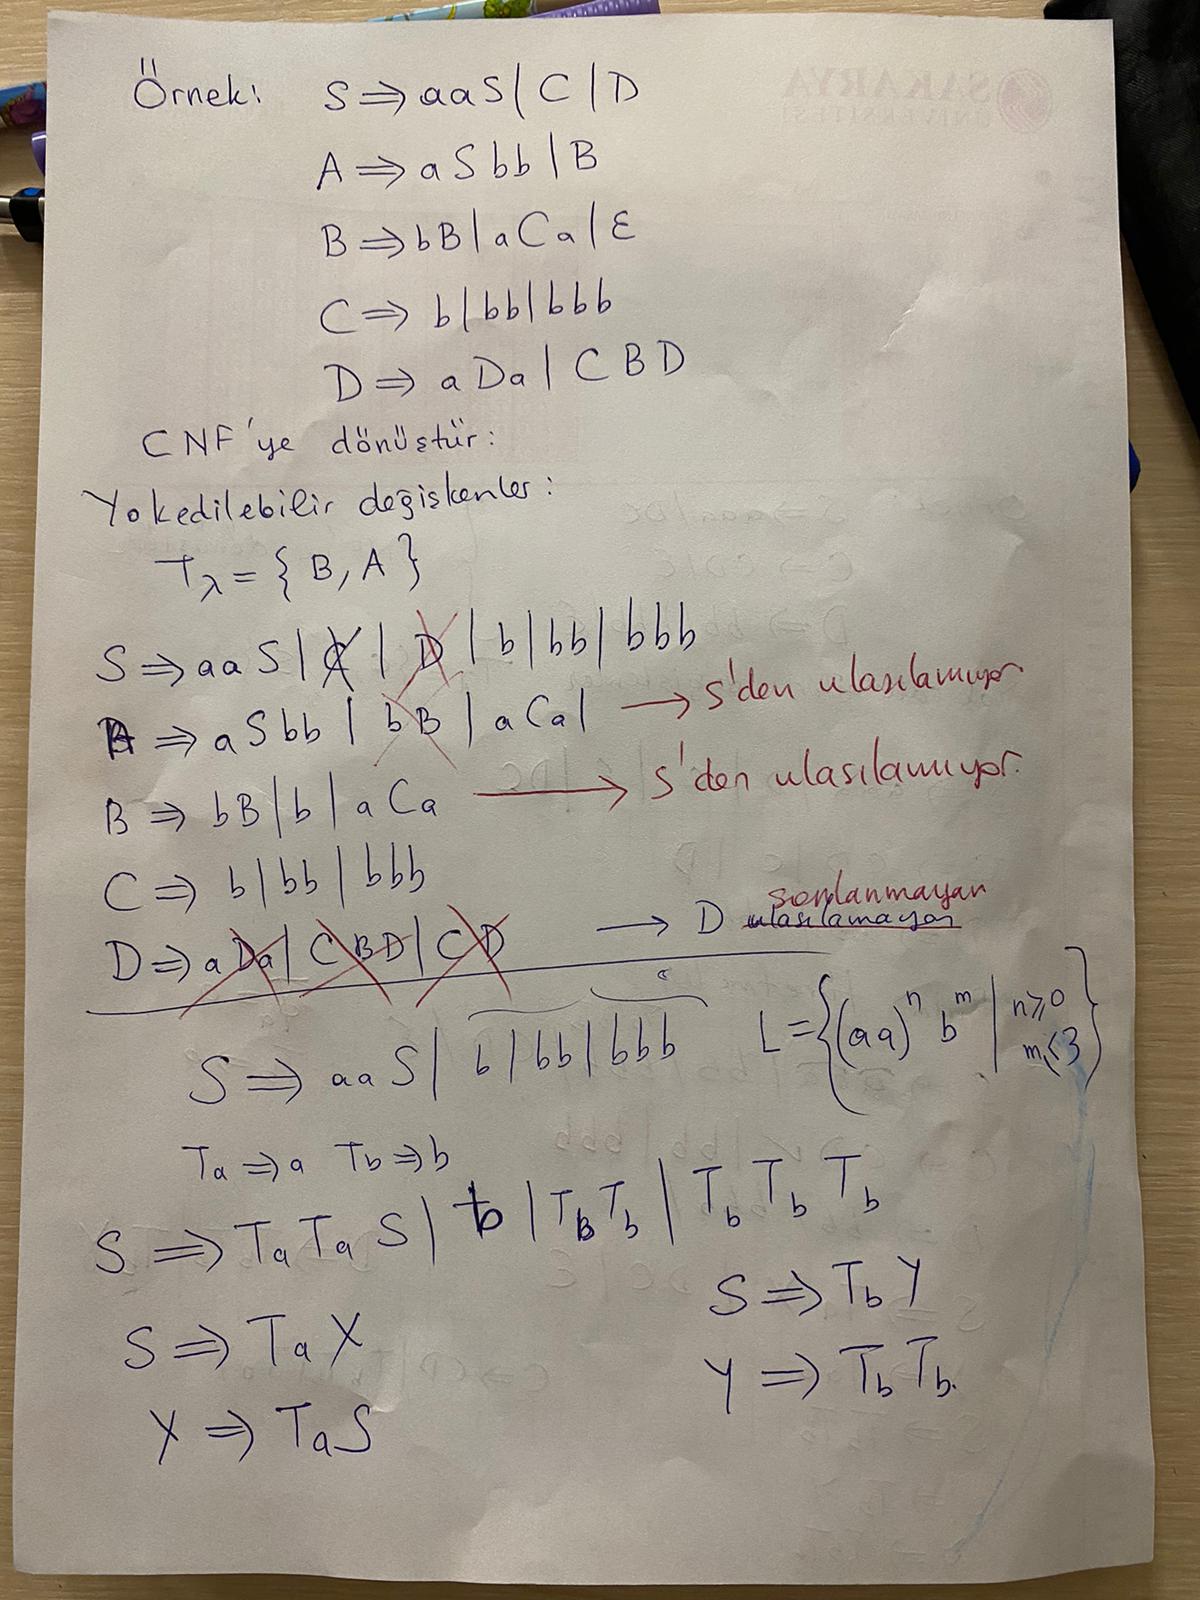 Örnek: S ⇒ aaS | C | D
A ⇒ aSbb | B
B ⇒ bB | aCa | ε
C ⇒ b | bb | bbb
D ⇒ aDa | CBD
CNF'ye dönüştür:
Yokedilebilir değişkenler:
Tλ = { B, A }
S ⇒ aaS | C | D | b | bb | bbb
A ⇒ aSbb | bB | aCa | → S'den ulaşılamıyor
B ⇒ bB | b | aCa → S'den ulaşılamıyor.
C ⇒ b | bb | bbb
sonlanmayan
D ⇒ aDa | CBD | CD → D ulaşılamayan
S ⇒ aaS | b | bb | bbb L = { (aa)ⁿ bᵐ | n ≥ 0
m ≤ 3 }
Ta ⇒ a Tb ⇒ b
S ⇒ Ta Ta S | b | TB Tb | Tb Tb Tb
S ⇒ Tb Y
S ⇒ Ta X
Y ⇒ Tb Tb.
X ⇒ Ta S